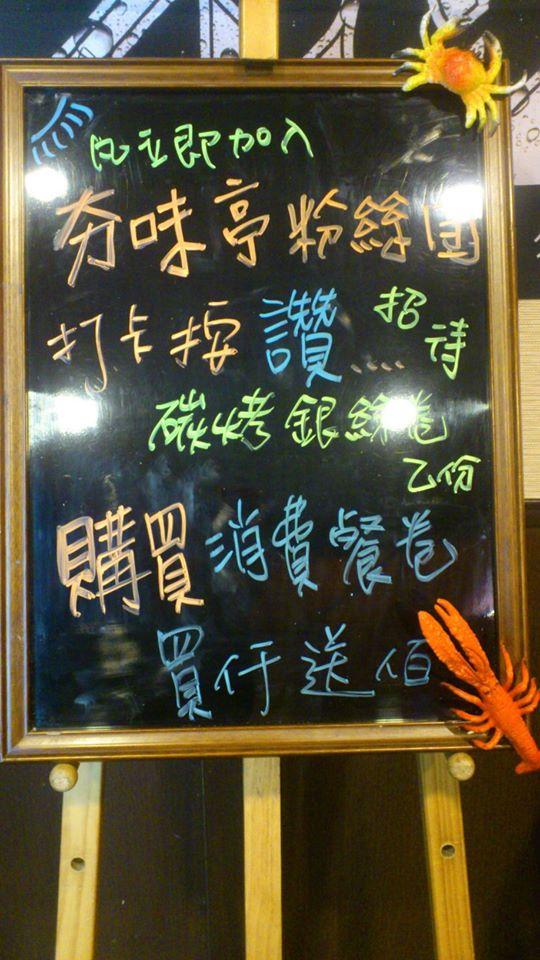 凡立即加入
夯味亭粉絲團
打卡按讚....招待
碳烤銀絲卷
乙份
購買消費餐卷
買仟送佰